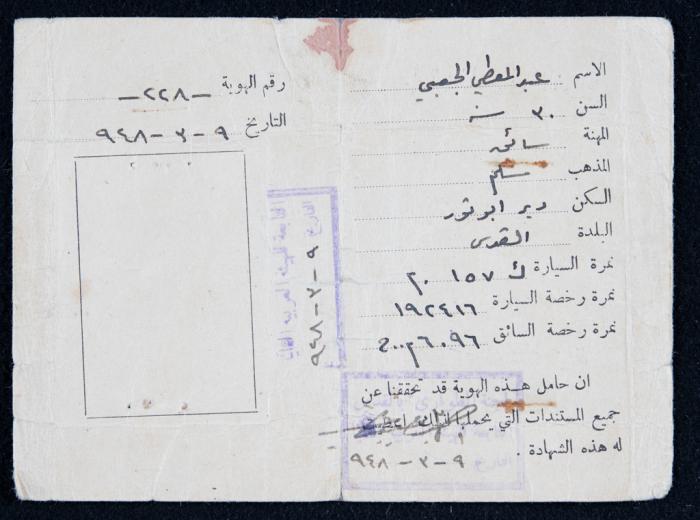 الاسم عبد المعطي الجعبي
السن ٣٠ سنة
المهنة سائق
المذهب مسلم
السكن دير ابو ثور
البلدة القدس
نمرة السيارة ك ١٥٧
نمرة رخصة السيارة ١٩٢٤١٦
نمرة رخصة السائق
ان حامل هذه الهوية قد تحققنا عن
جميع المستندات التي يحملها
له هذه الشهادة .
التاريخ ٩-٣-٩٤٨
رقم الهوية -٢٢٨-
التاريخ ٩-٣-٩٤٨
التاريخ ٩-٣-٩٤٨